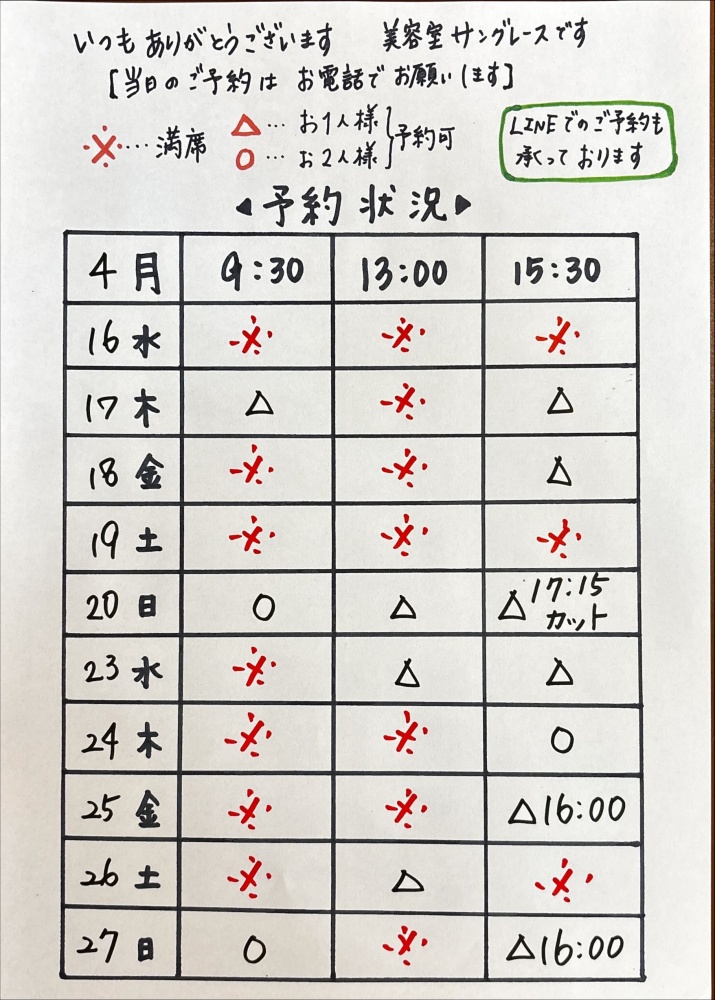 いつもありがとうございます 美容室サングレースです
[当日のご予約は お電話で お願いします]
※…満席
△…お1人様
○…お2人様
予約可
LINEでのご予約も
承っております
◀予約状況▶
4月 9:30 13:00 15:30
16 水 ※ ※ ※
17 木 △ ※ △
18 金 ※ ※ △
19 土 ※ ※ ※
20 日 ○ △ △17:15 カット
23 水 ※ △ △
24 木 ※ ※ ○
25 金 ※ ※ △16:00
26 土 ※ △ ※
27 日 ○ ※ △16:00